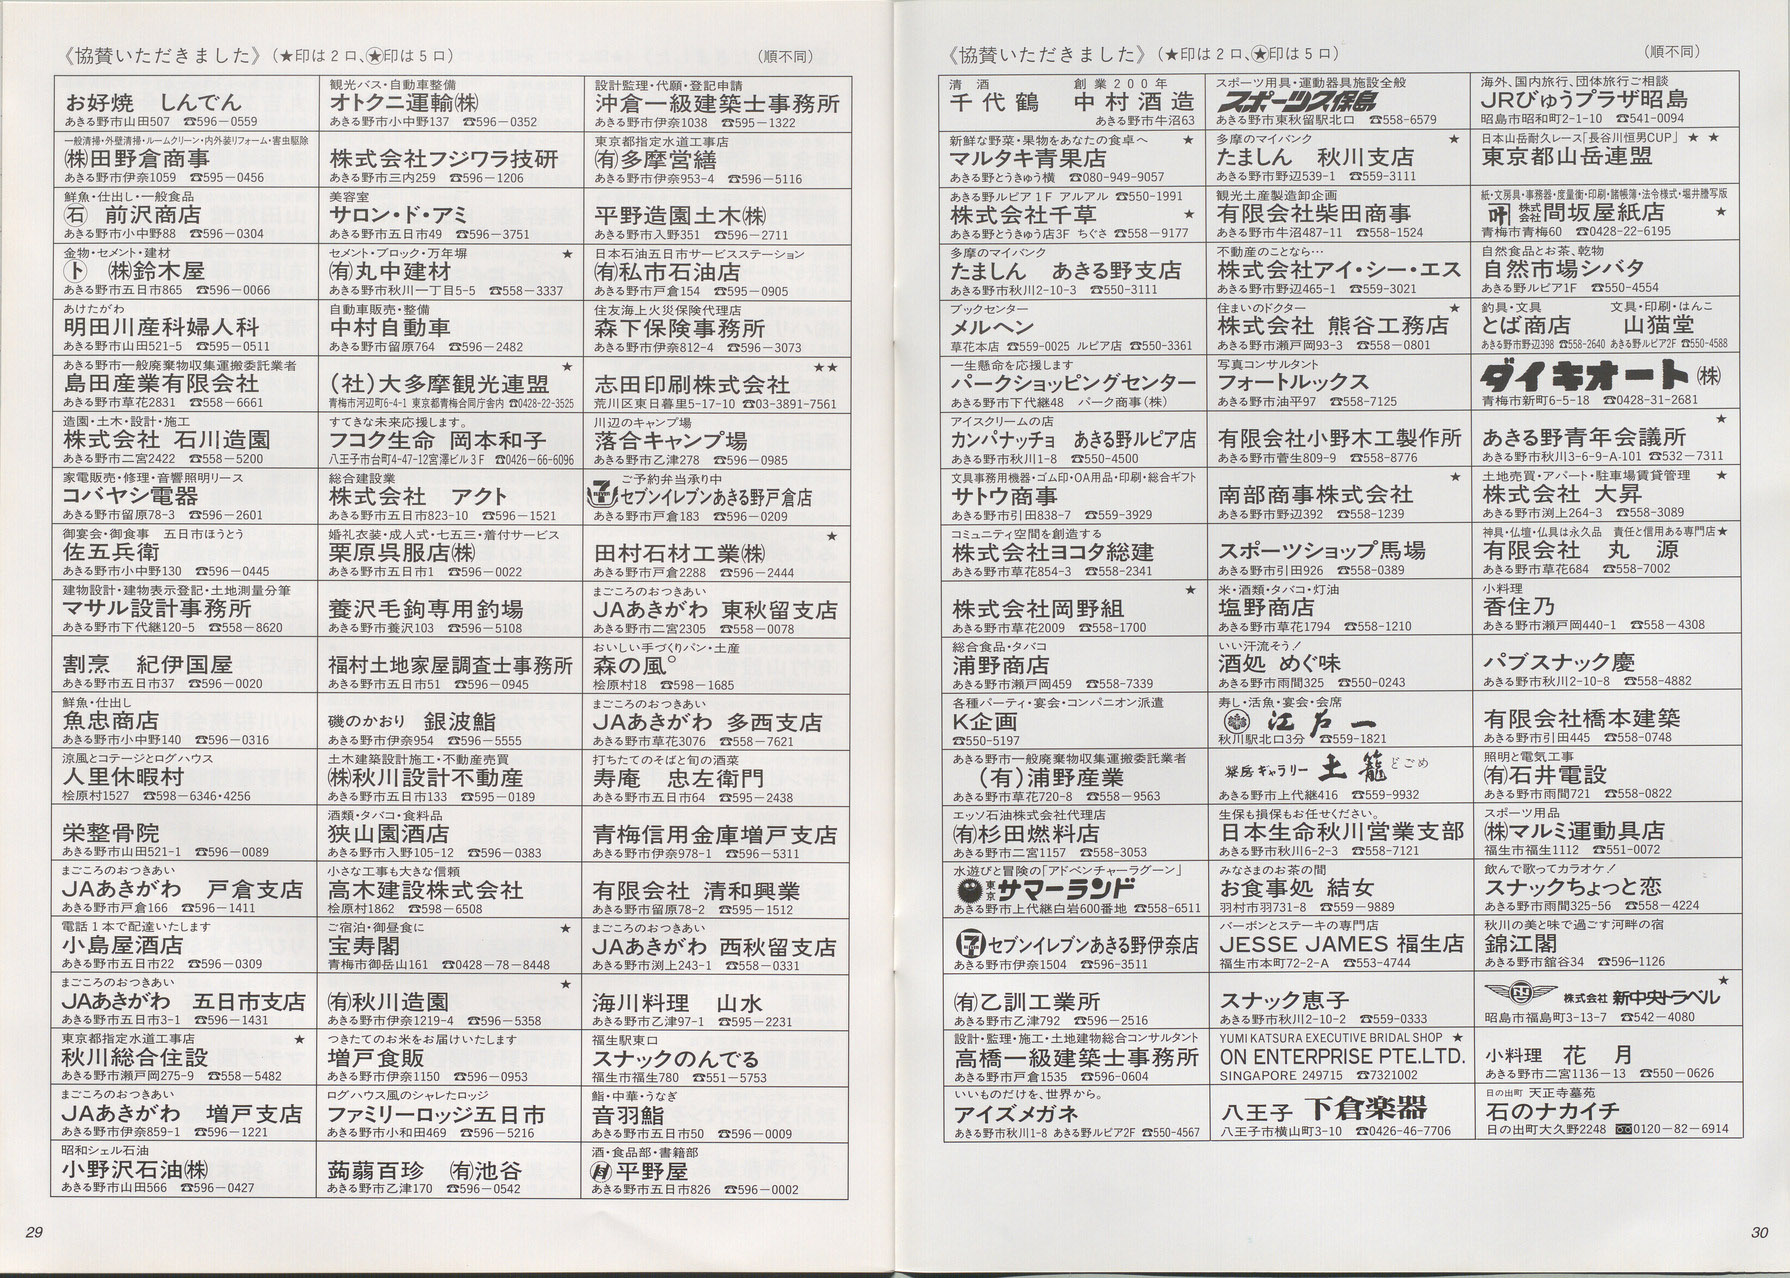 《協賛いただきました》(★印は2口、★印は5口) (順不同)
お好焼 しんでん
あきる野市山田507 ☎596-0559
観光バス・自動車整備
オトクニ運輸㈱
あきる野市小中野137 ☎596-0352
設計監理・代願・登記申請
沖倉一級建築士事務所
あきる野市伊奈1038 ☎595-1322
一般清掃・外壁清掃・ルームクリーン・内外装リフォーム・害虫駆除
㈱田野倉商事
あきる野市伊奈1059 ☎595-0456
株式会社フジワラ技研
あきる野市三内259 ☎596-1206
東京都指定水道工事店
㈲多摩営繕
あきる野市伊奈953-4 ☎596-5116
鮮魚・仕出し・一般食品
㊀石 前沢商店
あきる野市小中野88 ☎596-0304
美容室
サロン・ド・アミ
あきる野市五日市49 ☎596-3751
平野造園土木㈱
あきる野市入野351 ☎596-2711
金物・セメント・建材
ト ㈱鈴木屋
あきる野市五日市865 ☎596-0066
セメント・ブロック・万年塀 ★
㈲丸中建材
あきる野市秋川一丁目5-5 ☎558-3337
日本石油五日市サービスステーション
㈲私市石油店
あきる野市戸倉154 ☎595-0905
あけたがわ
明田川産科婦人科
あきる野市山田521-5 ☎595-0511
自動車販売・整備
中村自動車
あきる野市留原764 ☎596-2482
住友海上火災保険代理店
森下保険事務所
あきる野市伊奈812-4 ☎596-3073
あきる野市一般廃棄物収集運搬委託業者
島田産業有限会社
あきる野市草花2831 ☎558-6661
★
(社)大多摩観光連盟
青梅市河辺町6-4-1 東京都青梅合同庁舎内 ☎0428-22-3525
★★
志田印刷株式会社
荒川区東日暮里5-17-10 ☎03-3891-7561
造園・土木・設計・施工
株式会社 石川造園
あきる野市二宮2422 ☎558-5200
すてきな未来応援します。
フコク生命 岡本和子
八王子市台町4-47-12宮澤ビル3F ☎0426-66-6096
川辺のキャンプ場
落合キャンプ場
あきる野市乙津278 ☎596-0985
家電販売・修理・音響照明リース
コバヤシ電器
あきる野市留原78-3 ☎596-2601
総合建設業
株式会社 アクト
あきる野市五日市823-10 ☎596-1521
ご予約弁当承り中
7 ELEVEN セブンイレブンあきる野戸倉店
あきる野市戸倉183 ☎596-0209
御宴会・御食事 五日市ほうとう
佐五兵衛
あきる野市小中野130 ☎596-0445
婚礼衣装・成人式・七五三・着付サービス
栗原呉服店㈱
あきる野市五日市1 ☎596-0022
★
田村石材工業㈱
あきる野市戸倉2288 ☎596-2444
建物設計・建物表示登記・土地測量分筆
マサル設計事務所
あきる野市下代継120-5 ☎558-8620
養沢毛鉤専用釣場
あきる野市養沢103 ☎596-5108
まごころのおつきあい
JAあきがわ 東秋留支店
あきる野市二宮2305 ☎558-0078
割烹 紀伊国屋
あきる野市五日市37 ☎596-0020
福村土地家屋調査士事務所
あきる野市五日市51 ☎596-0945
おいしい手づくりパン・土産
森の風°
桧原村18 ☎598-1685
鮮魚・仕出し
魚忠商店
あきる野市小中野140 ☎596-0316
磯のかおり 銀波鮨
あきる野市伊奈954 ☎596-5555
まごころのおつきあい
JAあきがわ 多西支店
あきる野市草花3076 ☎558-7621
涼風とコテージとログハウス
人里休暇村
桧原村1527 ☎598-6346・4256
土木建築設計施工・不動産売買
㈱秋川設計不動産
あきる野市五日市133 ☎595-0189
打ちたてのそばと旬の酒菜
寿庵 忠左衛門
あきる野市五日市64 ☎595-2438
栄整骨院
あきる野市山田521-1 ☎596-0089
酒類・タバコ・食料品
狭山園酒店
あきる野市入野105-12 ☎596-0383
青梅信用金庫増戸支店
あきる野市伊奈978-1 ☎596-5311
まごころのおつきあい
JAあきがわ 戸倉支店
あきる野市戸倉166 ☎596-1411
小さな工事も大きな信頼
高木建設株式会社
桧原村1862 ☎598-6508
有限会社 清和興業
あきる野市留原78-2 ☎595-1512
電話1本で配達いたします
小島屋酒店
あきる野市五日市22 ☎596-0309
ご宿泊・御昼食に ★
宝寿閣
青梅市御岳山161 ☎0428-78-8448
まごころのおつきあい
JAあきがわ 西秋留支店
あきる野市渕上243-1 ☎558-0331
まごころのおつきあい
JAあきがわ 五日市支店
あきる野市五日市3-1 ☎596-1431
★
㈲秋川造園
あきる野市伊奈1219-4 ☎596-5358
海川料理 山水
あきる野市乙津97-1 ☎595-2231
東京都指定水道工事店 ★
秋川総合住設
あきる野市瀬戸岡275-9 ☎558-5482
つきたてのお米をお届けいたします
増戸食販
あきる野市伊奈1150 ☎596-0953
福生駅東口
スナックのんでる
福生市福生780 ☎551-5753
まごころのおつきあい
JAあきがわ 増戸支店
あきる野市伊奈859-1 ☎596-1221
ログハウス風のシャレたロッジ
ファミリーロッジ五日市
あきる野市小和田469 ☎596-5216
鮨・中華・うなぎ
音羽鮨
あきる野市五日市50 ☎596-0009
昭和シェル石油
小野沢石油㈱
あきる野市山田566 ☎596-0427
蒟蒻百珍 ㈲池谷
あきる野市乙津170 ☎596-0542
酒・食品部・書籍部
平野屋
あきる野市五日市826 ☎596-0002
29
《協賛いただきました》(★印は2口、★印は5口) (順不同)
清酒 創業200年
千代鶴 中村酒造
あきる野市牛沼63
スポーツ用具・運動器具施設全般
スポーツス保島
あきる野市東秋留駅北口 ☎558-6579
海外、国内旅行、団体旅行ご相談
JRびゅうプラザ昭島
昭島市昭和町2-1-10 ☎541-0094
新鮮な野菜・果物をあなたの食卓へ ★
マルタキ青果店
あきる野とうきゅう横 ☎080-949-9057
多摩のマイバンク ★
たましん 秋川支店
あきる野市野辺539-1 ☎559-3111
日本山岳耐久レース「長谷川恒男CUP」 ★ ★
東京都山岳連盟
あきる野ルピア1F アルアル ☎550-1991
株式会社千草 ★
あきる野とうきゅう店3F ちぐさ ☎558-9177
観光土産製造卸企画
有限会社柴田商事
あきる野市牛沼487-11 ☎558-1524
紙・文房具・事務器・度量衡・印刷・諸帳簿・法令様式・堀井謄写版
株式会社間坂屋紙店 ★
青梅市青梅60 ☎0428-22-6195
多摩のマイバンク
たましん あきる野支店
あきる野市秋川2-10-3 ☎550-3111
不動産のことなら…
株式会社アイ・シー・エス
あきる野市野辺465-1 ☎559-3021
自然食品とお茶、乾物
自然市場シバタ
あきる野ルピア1F ☎550-4554
ブックセンター
メルヘン
草花本店 ☎559-0025 ルピア店 ☎550-3361
住まいのドクター ★
株式会社 熊谷工務店
あきる野市瀬戸岡93-3 ☎558-0801
釣具・文具 文具・印刷・はんこ
とば商店 山猫堂
あきる野市野辺398 ☎558-2640 あきる野ルピア2F ☎550-4588
一生懸命を応援します
パークショッピングセンター
あきる野市下代継48 パーク商事(株)
写真コンサルタント
フォートルックス
あきる野市油平97 ☎558-7125
ダイキオート㈱
青梅市新町6-5-18 ☎0428-31-2681
アイスクリームの店
カンパナッチョ あきる野ルピア店
あきる野市秋川1-8 ☎550-4500
有限会社小野木工製作所
あきる野市菅生809-9 ☎558-8776
★
あきる野青年会議所
あきる野市秋川3-6-9-A-101 ☎532-7311
文具事務用機器・ゴム印・OA用品・印刷・総合ギフト
サトウ商事
あきる野市引田838-7 ☎559-3929
★
南部商事株式会社
あきる野市野辺392 ☎558-1239
土地売買・アパート・駐車場賃貸管理 ★
株式会社 大昇
あきる野市渕上264-3 ☎558-3089
コミュニティ空間を創造する
株式会社ヨコタ総建
あきる野市草花854-3 ☎558-2341
スポーツショップ馬場
あきる野市引田926 ☎558-0389
神具・仏壇・仏具は永久品 責任と信用ある専門店★
有限会社 丸源
あきる野市草花684 ☎558-7002
★
株式会社岡野組
あきる野市草花2009 ☎558-1700
米・酒類・タバコ・灯油
塩野商店
あきる野市草花1794 ☎558-1210
小料理
香住乃
あきる野市瀬戸岡440-1 ☎558-4308
総合食品・タバコ
浦野商店
あきる野市瀬戸岡459 ☎558-7339
いい汗流そう!
酒処 めぐ味
あきる野市雨間325 ☎550-0243
パブスナック慶
あきる野市秋川2-10-8 ☎558-4882
各種パーティ・宴会・コンパニオン派遣
K企画
☎550-5197
寿し・活魚・宴会・会席
江戸一
秋川駅北口3分 ☎559-1821
有限会社橋本建築
あきる野市引田445 ☎558-0748
あきる野市一般廃棄物収集運搬委託業者
(有)浦野産業
あきる野市草花720-8 ☎558-9563
ギャラリー 土籠 どごめ
あきる野市上代継416 ☎559-9932
照明と電気工事
㈲石井電設
あきる野市雨間721 ☎558-0822
エッソ石油株式会社代理店
㈲杉田燃料店
あきる野市二宮1157 ☎558-3053
生保も損保もお任せください。
日本生命秋川営業支部
あきる野市秋川6-2-3 ☎558-7121
スポーツ用品
㈱マルミ運動具店
福生市福生1112 ☎551-0072
水遊びと冒険の「アドベンチャーラグーン」
東京サマーランド
あきる野市上代継白岩600番地 ☎558-6511
みなさまのお茶の間
お食事処 結女
羽村市羽731-8 ☎559-9889
飲んで歌ってカラオケ!
スナックちょっと恋
あきる野市雨間325-56 ☎558-4224
7 ELEVEN セブンイレブンあきる野伊奈店
あきる野市伊奈1504 ☎596-3511
バーボンとステーキの専門店
JESSE JAMES 福生店
福生市本町72-2-A ☎553-4744
秋川の美と味で過ごす河畔の宿
錦江閣
あきる野市舘谷34 ☎596-1126
㈲乙訓工業所
あきる野市乙津792 ☎596-2516
スナック恵子
あきる野市秋川2-10-2 ☎559-0333
★
株式会社 新中央トラベル
昭島市福島町3-13-7 ☎542-4080
設計・監理・施工・土地建物総合コンサルタント
高橋一級建築士事務所
あきる野市戸倉1535 ☎596-0604
YUMI KATSURA EXECUTIVE BRIDAL SHOP ★
ON ENTERPRISE PTE.LTD.
SINGAPORE 249715 ☎7321002
小料理 花月
あきる野市二宮1136-13 ☎550-0626
いいものだけを、世界から。
アイズメガネ
あきる野市秋川1-8 あきる野ルピア2F ☎550-4567
八王子 下倉楽器
八王子市横山町3-10 ☎0426-46-7706
日の出町 天正寺墓苑
石のナカイチ
日の出町大久野2248 0120-82-6914
30